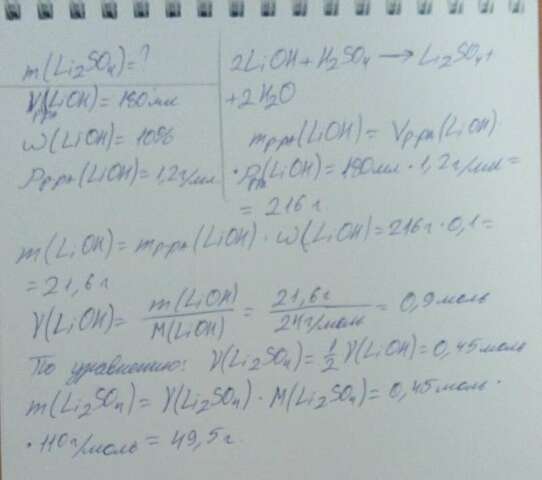 m(Li₂SO₄)=?
Vр-ра(LiOH)=180мл
ω(LiOH)=10%
ρр-ра(LiOH)=1,2г/мл
2LiOH+H₂SO₄→Li₂SO₄+
+2H₂O
mр-ра(LiOH)=Vр-ра(LiOH)·
·ρр-ра(LiOH)=180мл·1,2г/мл=
=216г
m(LiOH)=mр-ра(LiOH)·ω(LiOH)=216г·0,1=
=21,6г
γ(LiOH)=m(LiOH)/M(LiOH)=21,6г/24г/моль=0,9моль
По уравнению: γ(Li₂SO₄)=1/2γ(LiOH)=0,45моль
m(Li₂SO₄)=γ(Li₂SO₄)·M(Li₂SO₄)=0,45моль·
·110г/моль=49,5г.